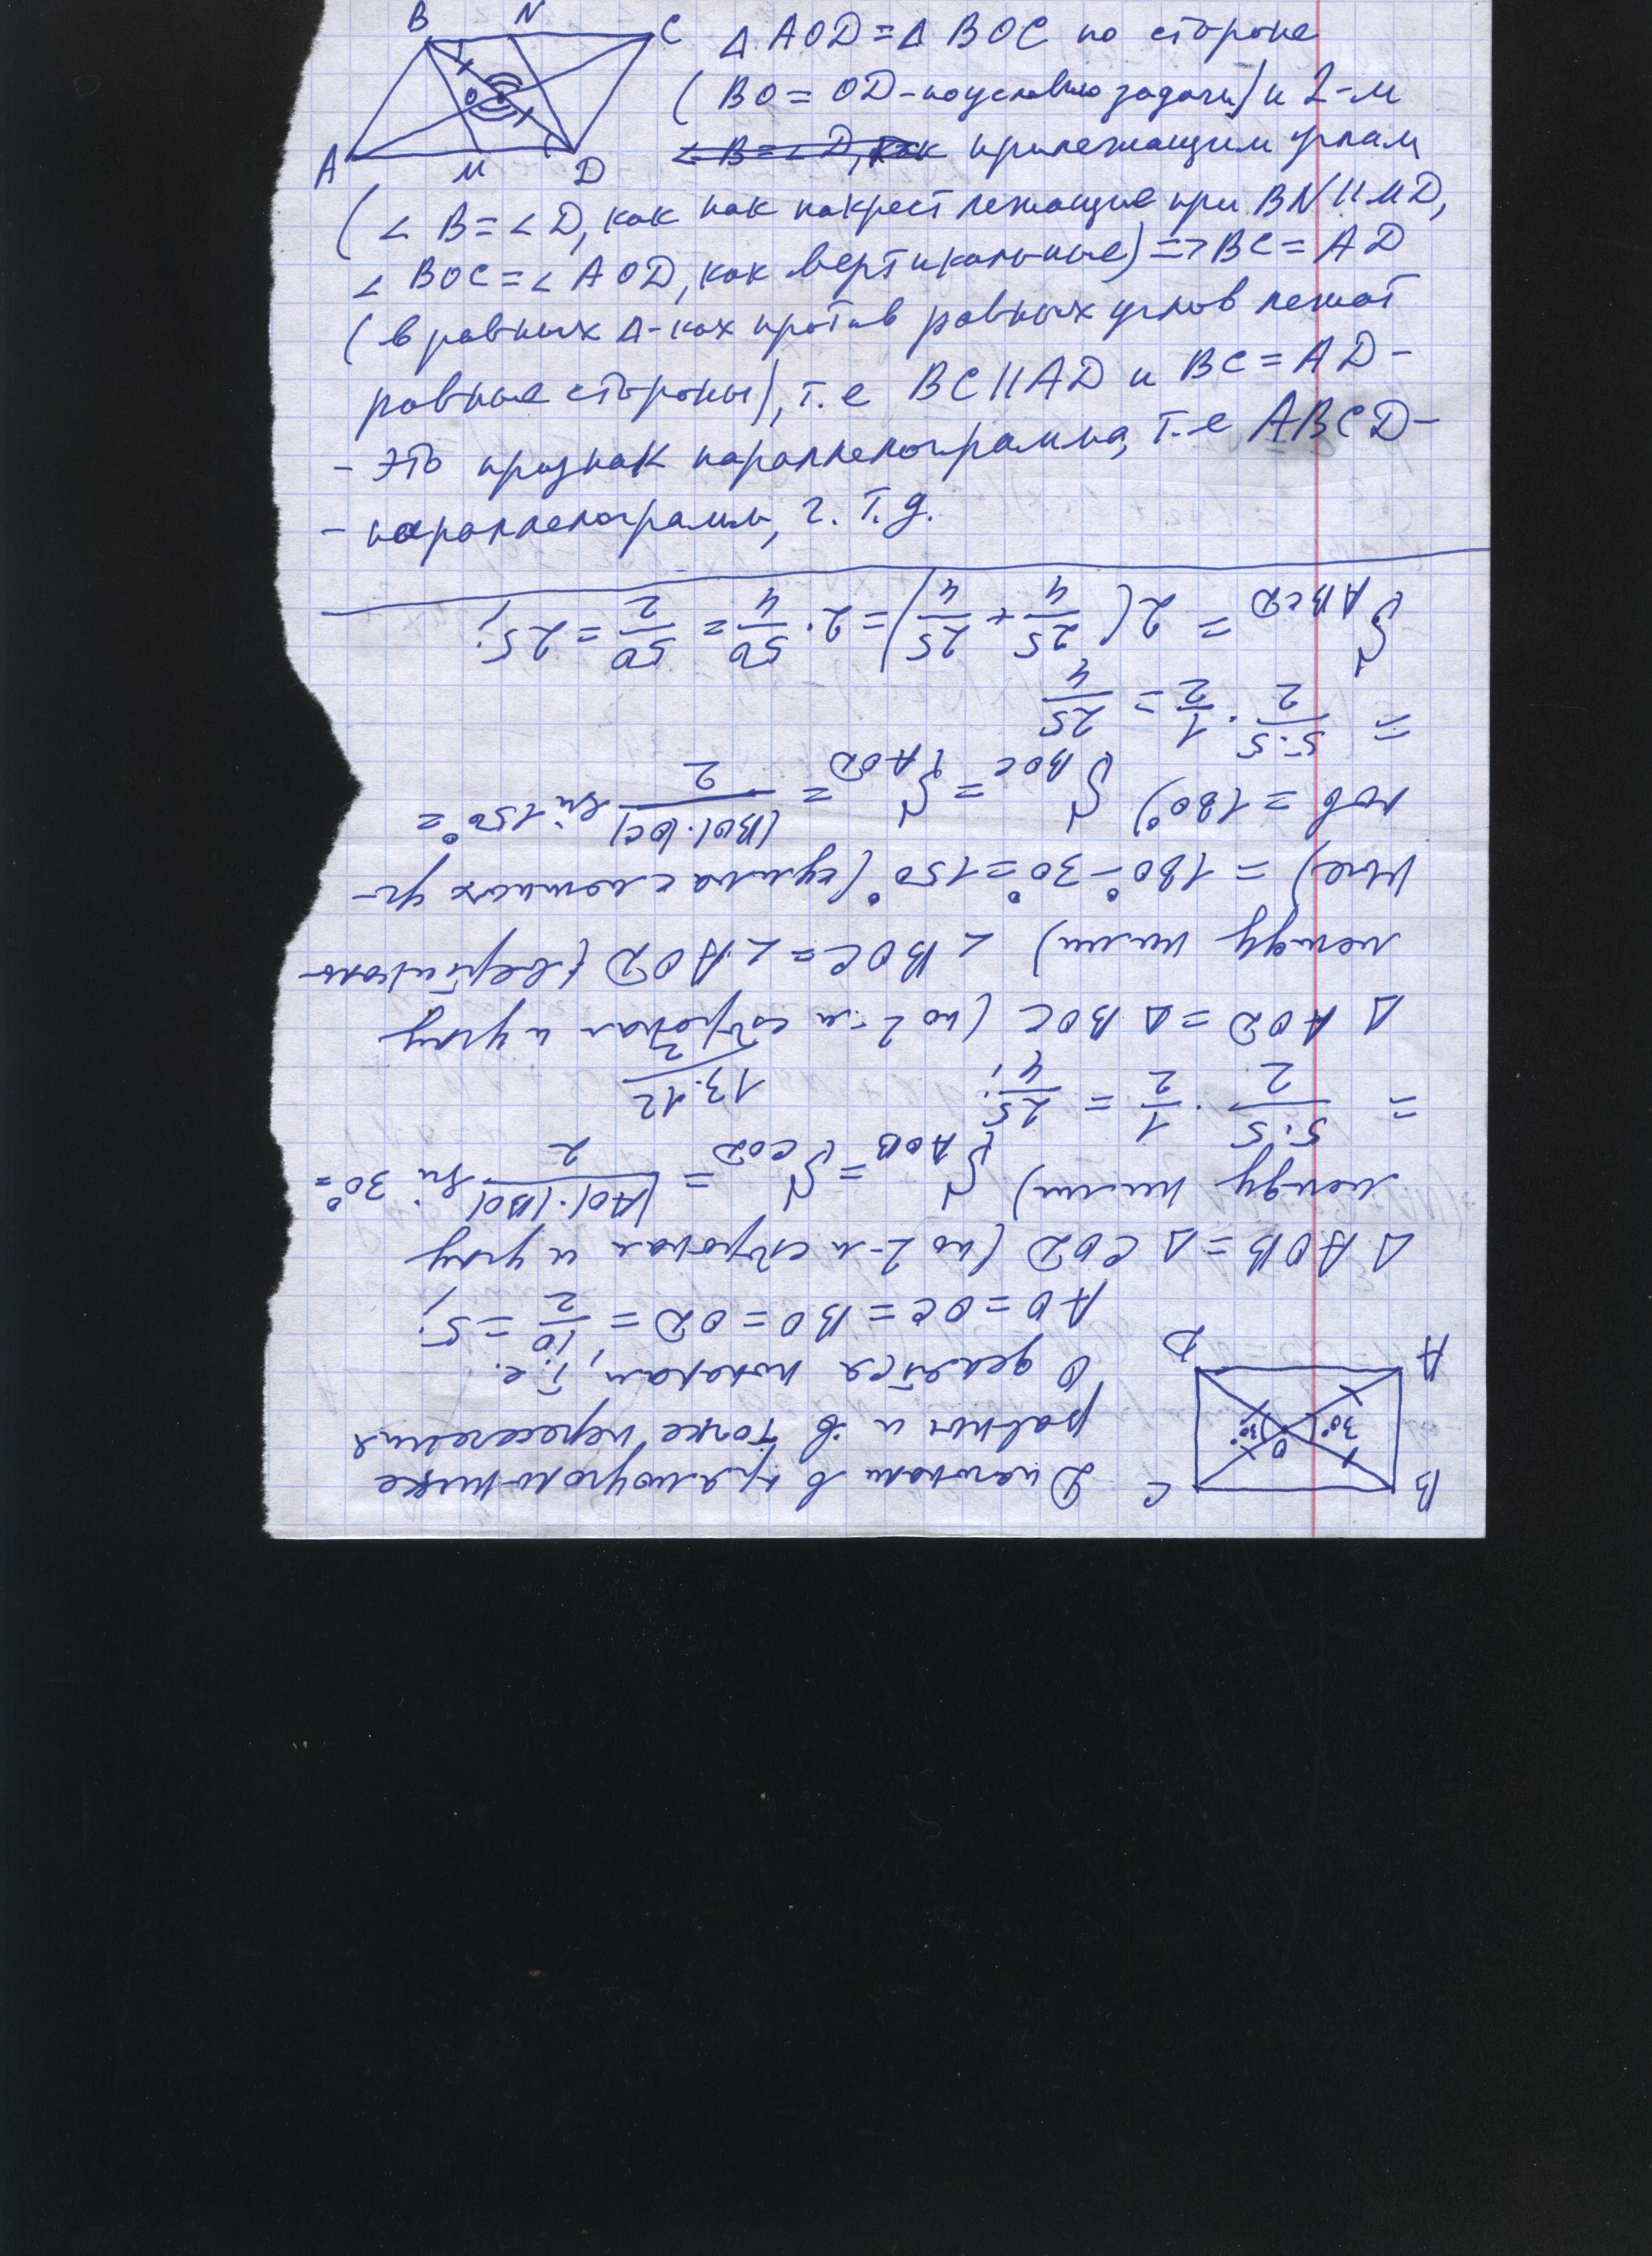 B N C
O
A M D
Δ AOD = Δ BOC по стороне
(BO = OD - по условию задачи) и 2-м
прилежащим углам
(< B = < D, как нак накрест лежащие при BN || MD,
< BOC = < AOD, как вертикальные) => BC = AD
(в равных Δ-ках против равных углов лежат
равные стороны), т.е BC || AD и BC = AD -
- это признак параллелограмма, т-е ABCD -
- параллелограмм, ч. т. д.
B C
30° O 30°
A D
Диагонали в прямоугольнике
равны и в точке пересечения
O делятся пополам, т.е.
AO = OC = BO = OD = 10/2 = 5;
Δ AOB = Δ COD (по 2-м сторонам и углу
между ними) S AOB = S COD = |AO|·|BO|/2 sin 30° =
= 5·5/2 · 1/2 = 25/4; 13·12/2
Δ AOD = Δ BOC (по 2-м сторонам и углу
между ними) < BOC = < AOD (вертикаль-
ные) = 180° - 30° = 150° (сумма смежных уг-
лов = 180°) S BOC = S AOD = |BO|·|OC|/2 sin 150° =
= 5·5/2 · 1/2 = 25/4
S ABCD = 2(25/4 + 25/4) = 2·50/4 = 50/2 = 25;